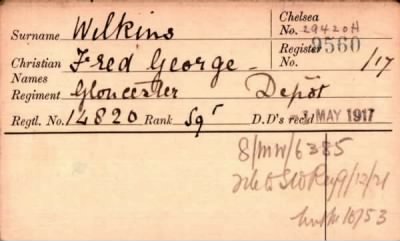 Surname Wilkins Chelsea No. 29420H
Christian Names Fred George - Register No. 9560/17
Regiment Gloucester Depôt
Regtl. No. 14820 Rank Sgt D.D's recd MAY 1917
8/MW/6385
9/12/21
10/53